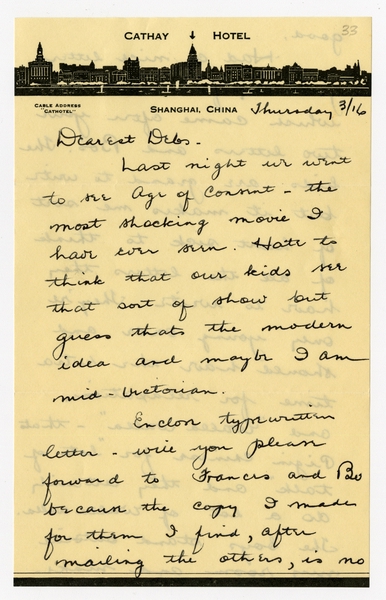 33
CATHAY HOTEL
CABLE ADDRESS
"CATHOTEL"
SHANGHAI, CHINA Thursday 3/16
Dearest Debs -
Last night we went
to see Age of Consent - the
most shocking movie I
have ever seen. Hate to
think that our kids see
that sort of show but
guess thats the modern
idea and maybe I am
mid-Victorian.
Enclose typewritten
letter - will you please
forward to Frances and
because the copy I made
for them I find, after
mailing the others, is no